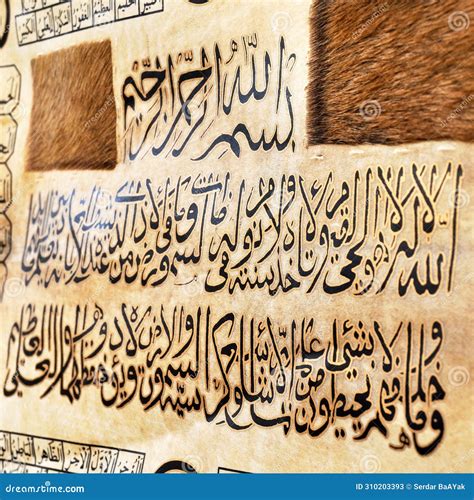 العظيم الغفور الشكور العلي الكبير
بسم الله الرحمن الرحيم
الله لا اله الا هو الحي القيوم لا تأخذه سنة ولا نوم له ما في السموات وما في الارض من ذا الذي يشفع عنده الا باذنه يعلم ما بين ايديهم
وما خلفهم ولا يحيطون بشيء من علمه الا بما شاء وسع كرسيه السموات والارض ولا يؤده حفظهما وهو العلي العظيم
الأول الآخر الظاهر
dreamstime.com
ID 310203393 © Serdar BaAYak